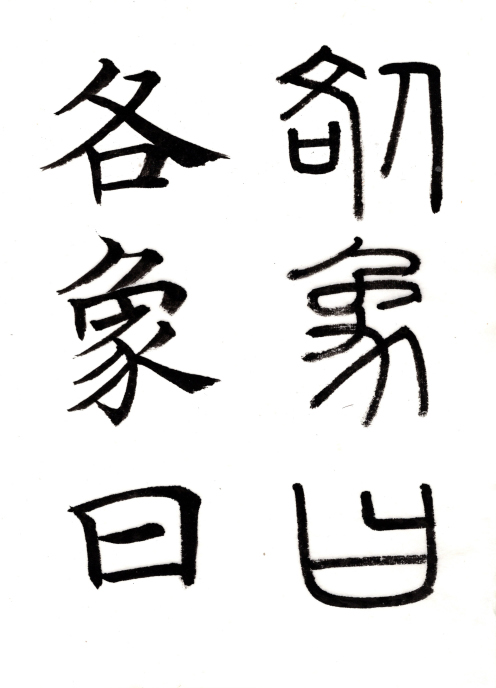 象曰
各象曰